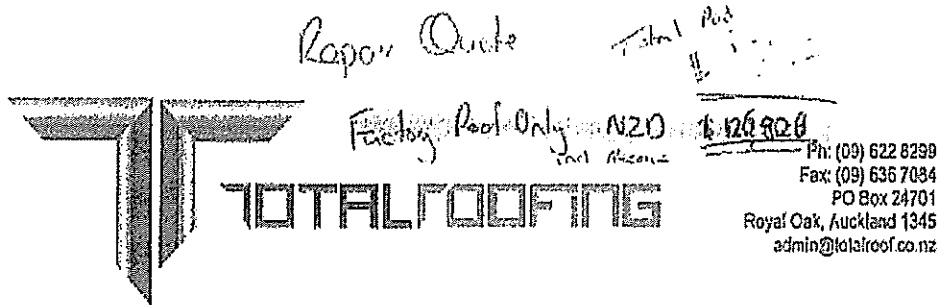 Repair Quote
Total
Factory Roof Only NZD
incl
TOTALROOFING
Ph: (09) 622 8299
Fax: (09) 636 7084
PO Box 24701
Royal Oak, Auckland 1345
admin@totalroof.co.nz